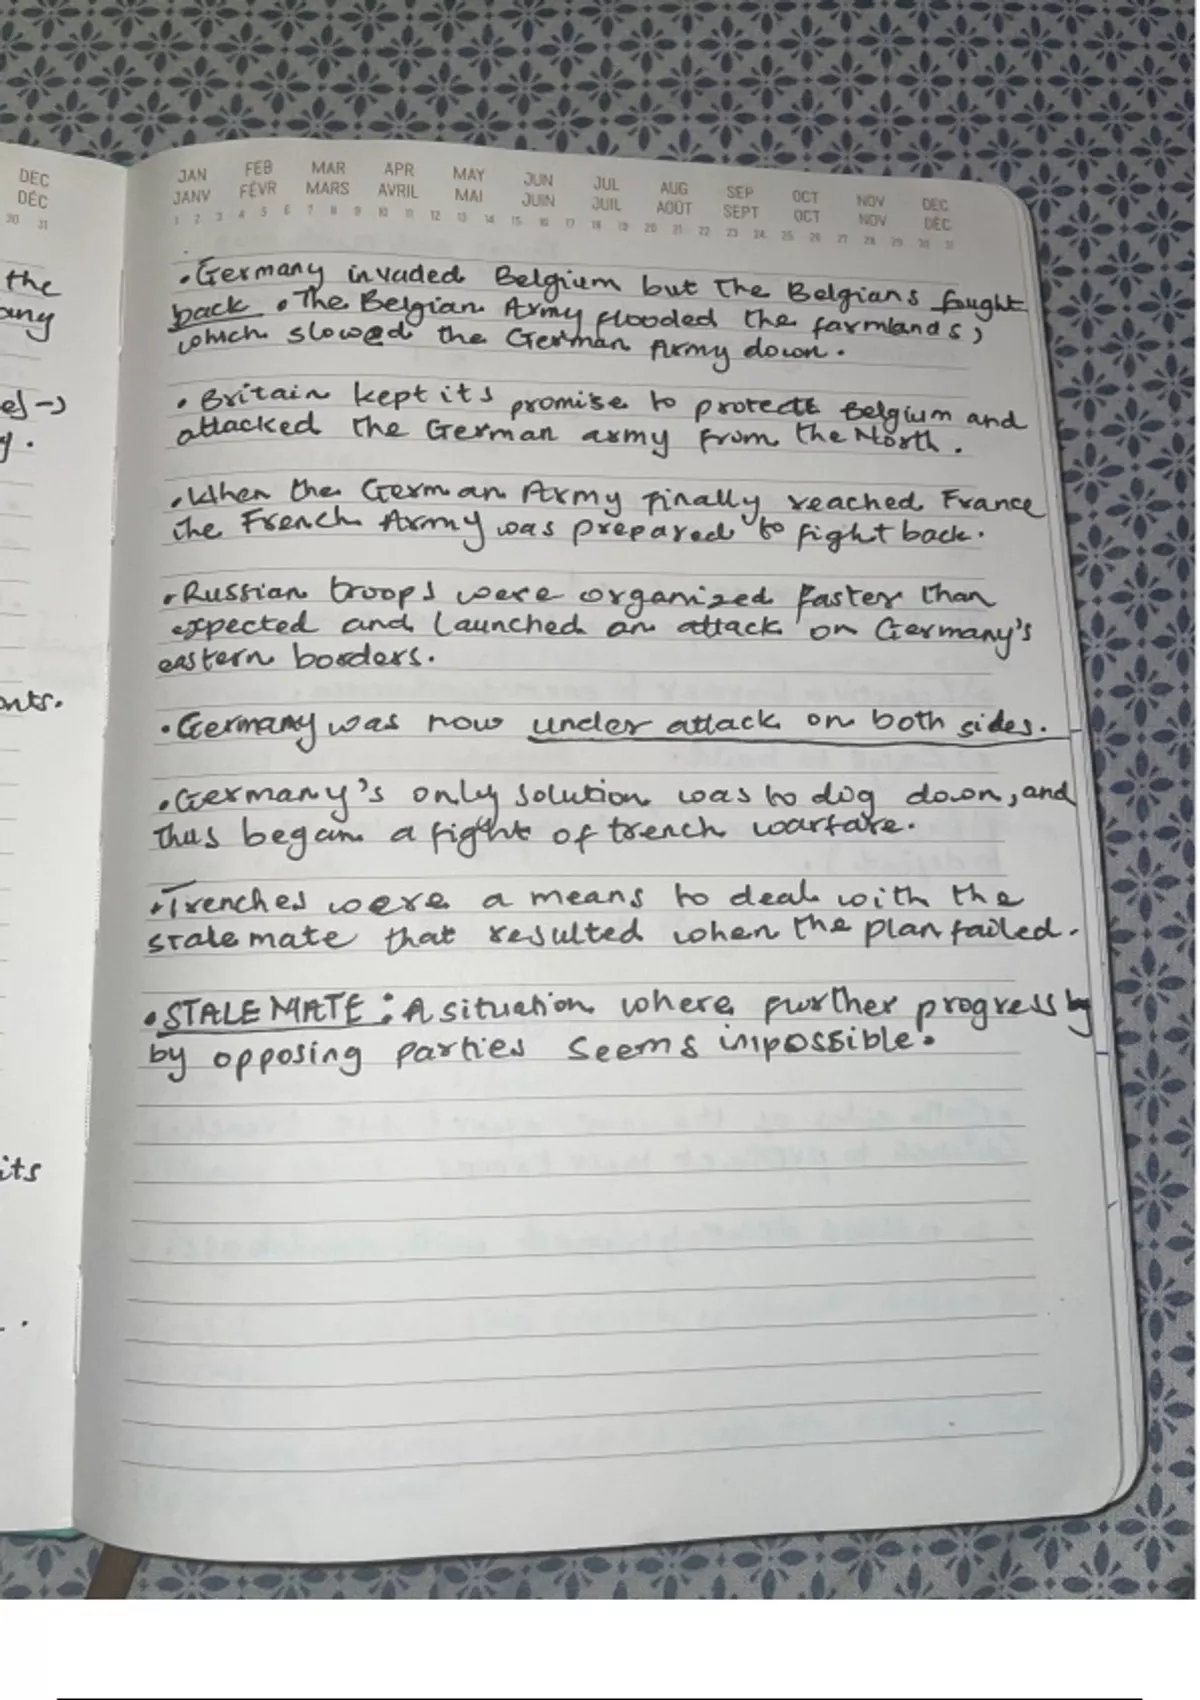 DEC
DÉC
30 31
the
any
es ->
y.
onts.
its
JAN FEB MAR APR MAY JUN JUL AUG SEP OCT NOV DEC
JANV FÉVR MARS AVRIL MAI JUIN JUIL AOÛT SEPT OCT NOV DÉC
1 2 3 4 5 6 7 8 9 10 11 12 13 14 15 16 17 18 19 20 21 22 23 24 25 26 27 28 29 30 31
• Germany invaded Belgium but the Belgians fought
back • The Belgian Army flooded the farmlands,
which slowed the German Army down.
• Britain kept its promise to protect Belgium and
attacked the German army from the North.
• When the German Army finally reached France
the French Army was prepared to fight back.
• Russian troops were organized faster than
expected and launched an attack on Germany's
eastern borders.
• Germany was now under attack on both sides.
• Germany's only solution was to dig down, and
thus began a fight of trench warfare.
• Trenches were a means to deal with the
stalemate that resulted when the plan failed.
• STALEMATE : A situation where further progress by
by opposing parties seems impossible.